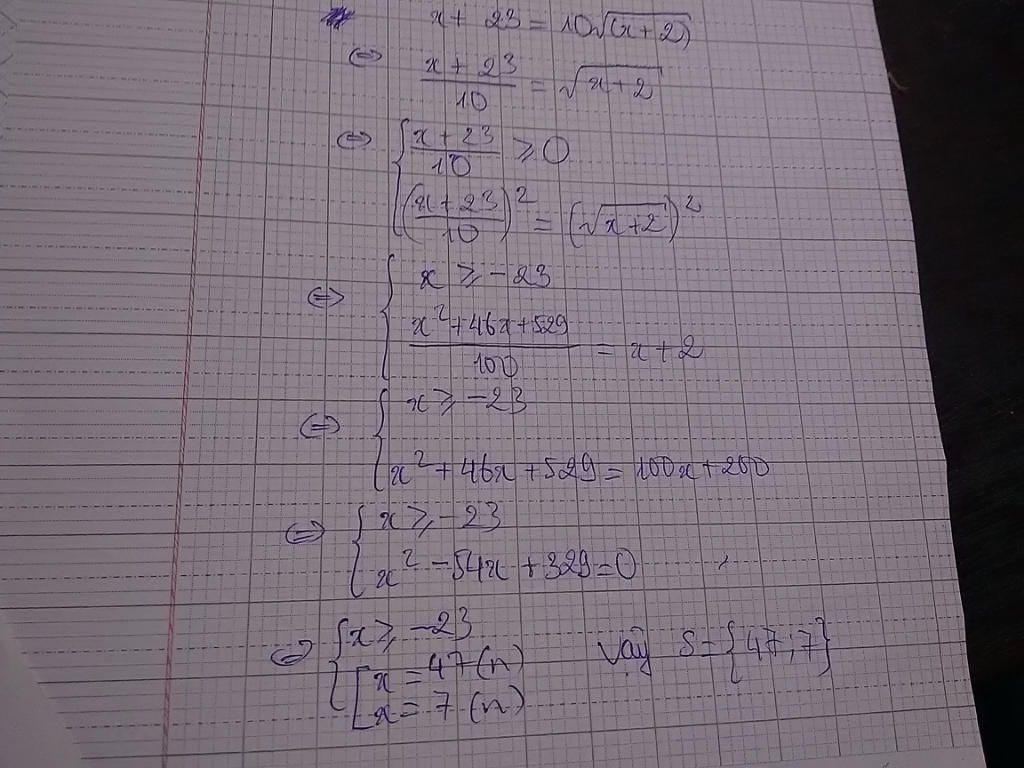 x + 23 = 10√(x+2)
⇔ (x + 23)/10 = √(x+2)
⇔ { (x + 23)/10 ⩾ 0
((x + 23)/10)² = (√(x+2))²
⇔ { x ⩾ -23
(x² + 46x + 529)/100 = x + 2
⇔ { x ⩾ -23
x² + 46x + 529 = 100x + 200
⇔ { x ⩾ -23
x² - 54x + 329 = 0
⇔ { x ⩾ -23
[ x = 47 (n) Vậy S = {47; 7}
x = 7 (n)